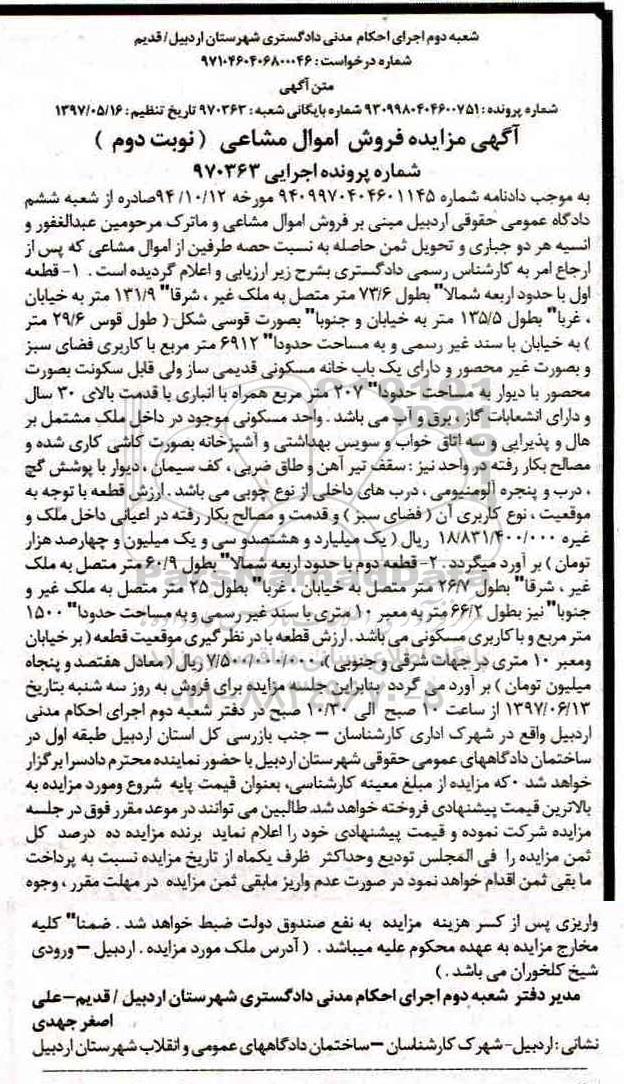 شعبه دوم اجرای احکام مدنی دادگستری شهرستان اردبیل/قدیم
شماره درخواست : ۹۷۱۰۴۶۰۴۰۶۸۰۰۰۴۶
متن آگهی
شماره پرونده : ۹۳۰۹۹۸۰۴۰۴۶۰۰۷۵۱ شماره بایگانی شعبه : ۹۷۰۳۶۳ تاریخ تنظیم : ۱۳۹۷/۰۵/۱۶
آگهی مزایده فروش اموال مشاعی ( نوبت دوم )
شماره پرونده اجرایی ۹۷۰۳۶۳
به موجب دادنامه شماره ۹۴۰۹۹۷۰۴۰۴۶۰۱۱۴۵ مورخه ۹۴/۱۰/۱۲صادره از شعبه ششم
دادگاه عمومی حقوقی اردبیل مبنی بر فروش اموال مشاعی و ماترک مرحومین عبدالغفور و
انسیه هر دو جباری و تحویل ثمن حاصله به نسبت حصه طرفین از اموال مشاعی که پس از
ارجاع امر به کارشناس رسمی دادگستری بشرح زیر ارزیابی و اعلام گردیده است . ۱- قطعه
اول با حدود اربعه شمالا" بطول ۷۳/۶ متر متصل به ملک غیر ، شرقا" ۱۳۱/۹ متر به خیابان
، غربا" بطول ۱۳۵/۵ متر به خیابان و جنوبا" بصورت قوسی شکل ( طول قوس ۲۹/۶ متر
) به خیابان با سند غیر رسمی و به مساحت حدودا" ۶۹۱۲ متر مربع با کاربری فضای سبز
و بصورت غیر محصور و دارای یک باب خانه مسکونی قدیمی ساز ولی قابل سکونت بصورت
محصور با دیوار به مساحت حدودا" ۲۰۷ متر مربع همراه با انباری با قدمت بالای ۳۰ سال
و دارای انشعابات گاز ، برق و آب می باشد . واحد مسکونی موجود در داخل ملک مشتمل بر
هال و پذیرایی و سه اتاق خواب و سویس بهداشتی و آشپزخانه بصورت کاشی کاری شده و
مصالح بکار رفته در واحد نیز : سقف تیر آهن و طاق ضربی ، کف سیمان ، دیوار با پوشش گچ
، درب و پنجره آلومنیومی ، درب های داخلی از نوع چوبی می باشد . ارزش قطعه با توجه به
موقعیت ، نوع کاربری آن ( فضای سبز ) و قدمت و مصالح بکار رفته در اعیانی داخل ملک و
غیره ۱۸/۸۳۱/۴۰۰/۰۰۰ ریال ( یک میلیارد و هشتصدو سی و یک میلیون و چهارصد هزار
تومان ) بر آورد میگردد . ۲- قطعه دوم با حدود اربعه شمالا" بطول ۶۰/۹ متر متصل به ملک
غیر ، شرقا" بطول ۲۶/۷ متر متصل به خیابان ، غربا" بطول ۲۵ متر متصل به ملک غیر و
جنوبا" نیز بطول ۶۶/۲ متر به معبر ۱۰ متری با سند غیر رسمی و به مساحت حدودا" ۱۵۰۰
متر مربع و با کاربری مسکونی می باشد . ارزش قطعه با در نظر گیری موقعیت قطعه ( بر خیابان
ومعبر ۱۰ متری در جهات شرقی و جنوبی )، ۷/۵۰۰/۰۰۰/۰۰۰ ریال ( معادل هفتصد و پنجاه
میلیون تومان ) بر آورد می گردد بنابراین جلسه مزایده برای فروش به روز سه شنبه بتاریخ
۱۳۹۷/۰۶/۱۳ از ساعت ۱۰ صبح الی ۱۰/۳۰ صبح در دفتر شعبه دوم اجرای احکام مدنی
اردبیل واقع در شهرک اداری کارشناسان – جنب بازرسی کل استان اردبیل طبقه اول در
ساختمان دادگاههای عمومی حقوقی شهرستان اردبیل با حضور نماینده محترم دادسرا برگزار
خواهد شد . که مزایده از مبلغ معینه کارشناسی، بعنوان قیمت پایه شروع ومورد مزایده به
بالاترین قیمت پیشنهادی فروخته خواهد شد. طالبین می توانند در موعد مقرر فوق در جلسه
مزایده شرکت نموده و قیمت پیشنهادی خود را اعلام نماید برنده مزایده ده درصد کل
ثمن مزایده را فی المجلس تودیع وحداکثر ظرف یکماه از تاریخ مزایده نسبت به پرداخت
ما بقی ثمن اقدام خواهد نمود در صورت عدم واریز مابقی ثمن مزایده در مهلت مقرر ، وجوه
واریزی پس از کسر هزینه مزایده به نفع صندوق دولت ضبط خواهد شد . ضمنا" کلیه
مخارج مزایده به عهده محکوم علیه میباشد . ( آدرس ملک مورد مزایده . اردبیل – ورودی
شیخ کلخوران می باشد . )
مدیر دفتر شعبه دوم اجرای احکام مدنی دادگستری شهرستان اردبیل / قدیم–علی
اصغر جهدی
نشانی : اردبیل–شهرک کارشناسان –ساختمان دادگاههای عمومی و انقلاب شهرستان اردبیل